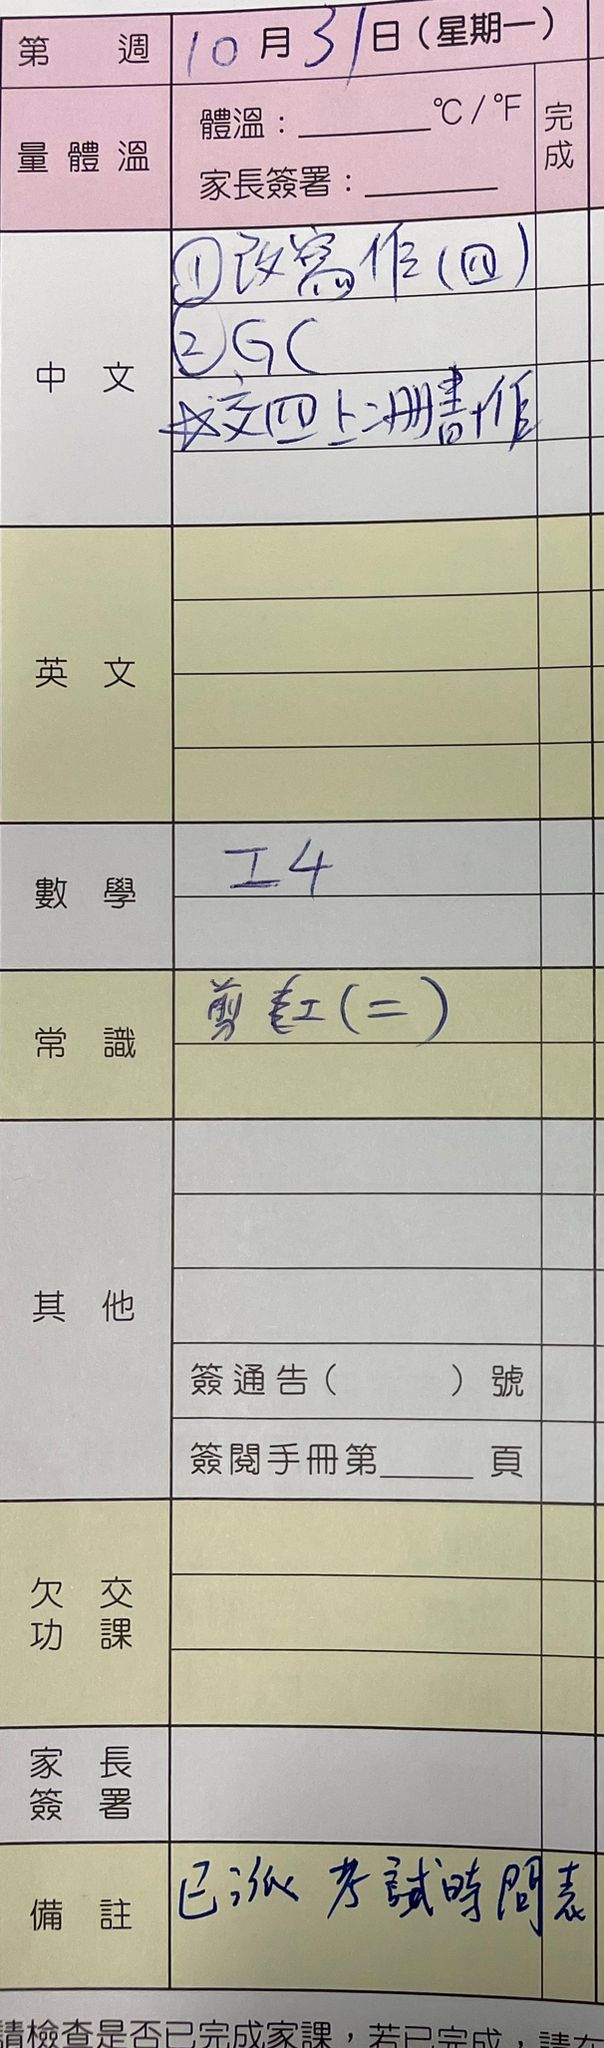 第 週 10月31日(星期一)
量體溫
體溫:______℃/℉
家長簽署:______
完成
中文
①改寫作(四)
②GC
☆交四上二冊書+作
英文
數學
工4
常識
剪紅(二)
其他
簽通告( )號
簽閱手冊第_____頁
欠交功課
家長簽署
備註
已派 考試時間表
請檢查是否已完成家課,若已完成,請在